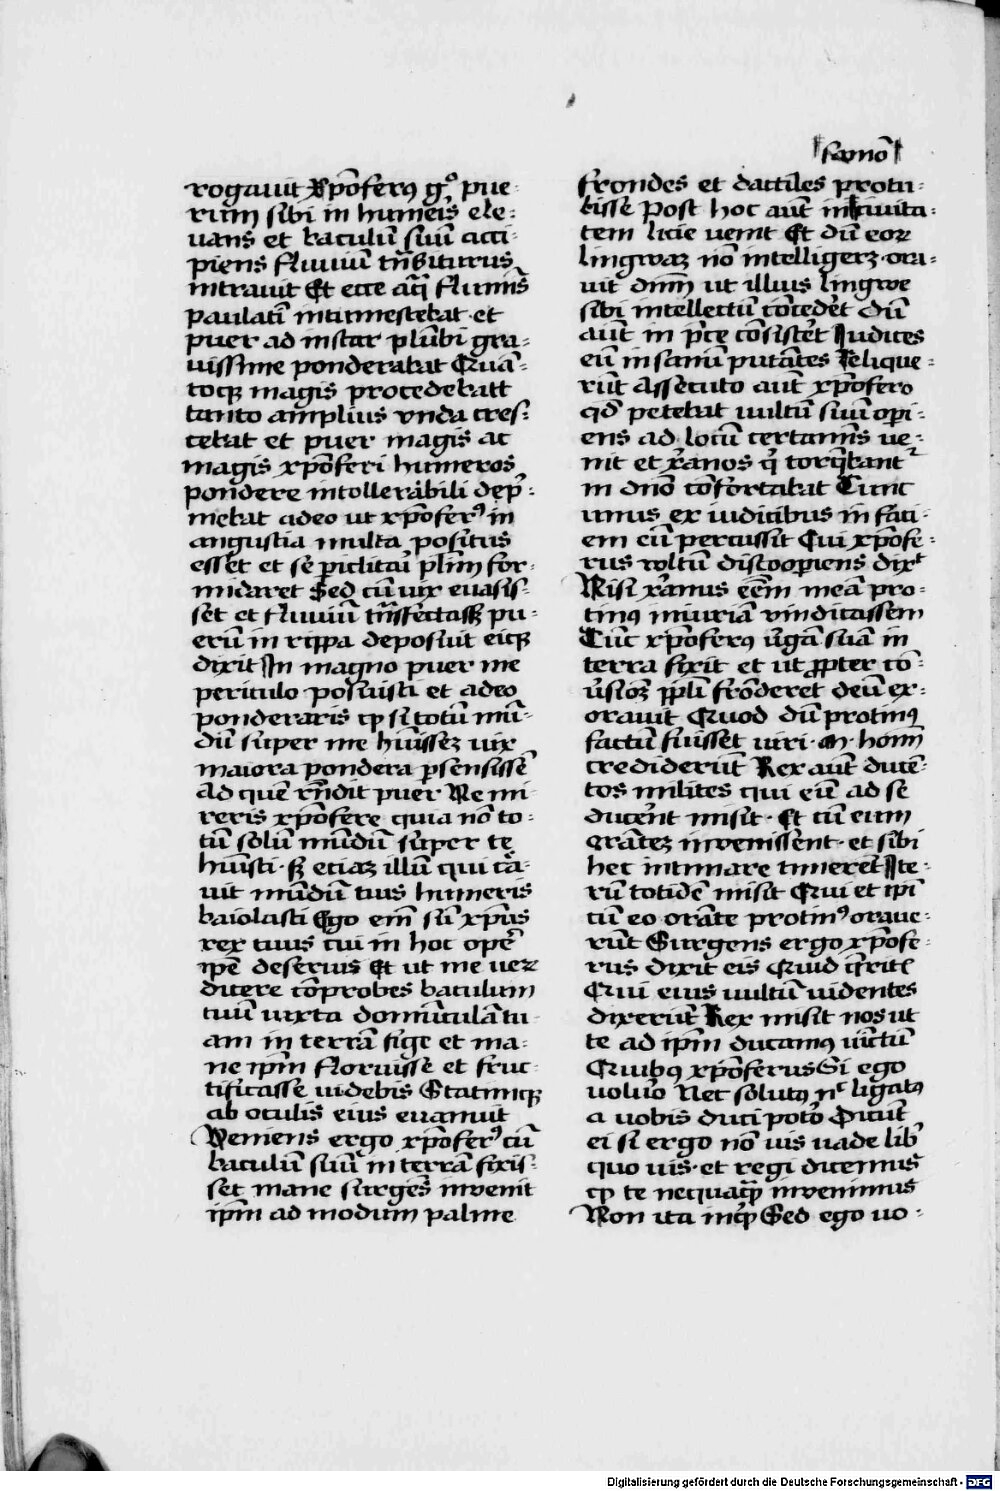 rogauit Xp̄oferꝰ gͦ pue-
rum sibi in humeꝭs ele-
uans et baculū suū acci-
piens fluuiū trāsiturus
intrauit Et ecce aq̄ flumīs
paulatī intumescebat et
puer ad instar plūbi gra-
uissime ponderabat Quā-
tocꝫ magis procedebatt
tanto amplius vnda cres-
cebat et puer magis ac
magis xp̄oferi humeros
pondere intollerabili dep̄-
mebat adeo ut xp̄oferꝰ in
angustia multa positus
esset et se ꝑiclitaꝝ pl̄im for-
midaret Sed cū uix euasis-
set et fluuiū trāsfectassꝫ pu-
erū in rippa deposuit eiqꝫ
dixit In magno puer me
periculo posuisti et adeo
ponderaris ꝙ si totū mū-
dū super me hūissez uix
maiora pondera ꝑsensissē
Ad quē rn̄dit puer Ne mi-
reris xp̄ofere quia nō to-
tū solū mūdū super te
hūisti sꝫ etiaz illū qui cͣa-
uit mūdū tuis humeris
baiolasti Ego em̄ sū xp̄us
rex tuus cui in hoc opē
ip̄e deseruis Et ut me ueꝝ
dicere cōprobes baculum
tuū iuxta domūculā tu-
am in terrā fige et ma-
ne ip̄m floruisse et fruc-
tificasse uidebis Statimqꝫ
ab oculis eius euanuit
Veniens ergo xp̄oferꝰ cū
baculū suū in terrā fixis-
set mane surgēs inuenit
ip̄m ad modum palme
frondes et dactiles protu-
lisse Post hoc aūt in ciuita-
tem licie uenit Et dū eoꝝ
lingwaz nō intelligerꝫ ora-
uit dn̄m ut illius lingwe
sibi intellectū cōcedet̄ Dū
aūt in p̄ce cōsistet̄ Iudices
eū insanū putātes relique-
rūt Assecuto aūt xp̄ofero
qd̄ petebat uultū suū oꝑi-
ens ad locū certamīs ue-
nit et xr̄anos q̄ torq̄bant᷑
in dn̄o cōfortabat Tunc
unus ex iudicibus in faci-
em eū percussit Qui xp̄ofe-
rus voltū discooꝑiens dixͭ
Nisi xr̄anus eēm meā pro-
tinꝰ iniuriā vindicassem
Tūc xp̄oferꝰ v̄gā suā in
terra fixit et ut ꝓpter cō-
v̄sioꝫ pp̄li frōderet deū ex-
orauit Quod dū protinꝰ
factū fuisset viri m hoīm
crediderūt Rex aūt ducē-
tos milites qui eū ad se
ducer̄nt misit Et cū eum
orātez inuenissent et sibi
hec intimare timeret̄ Ite-
rū totidē misit Qui et ip̄i
cū eo orāte protinꝰ oraue-
rūt Surgens ergo xp̄ofe-
rus dixit eis Quid q̄ritꝭ
Qui eius uultū uidentes
dixerūt Rex misit nos ut
te ad ip̄m ducamꝰ uīctū
Quibꝰ xp̄oferus Si ego
voluo᷑ Nec solutꝰ nͨ ligatꝰ
a uobis duci poto᷑ Dicūt
ei si ergo nō uis uade lib̄
quo uis et regi dicemus
ꝙ te nequaq̄ inuenimus
Non ita inq̄ Sed ego uo-
Digitalisierung gefördert durch die Deutsche Forschungsgemeinschaft - DFG